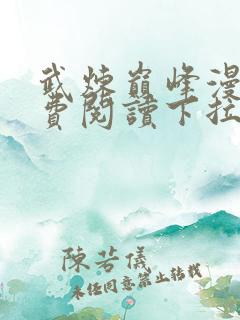 武煉巔峰漫
費閱讀下拉
陳若儀
未經同意禁止轉載